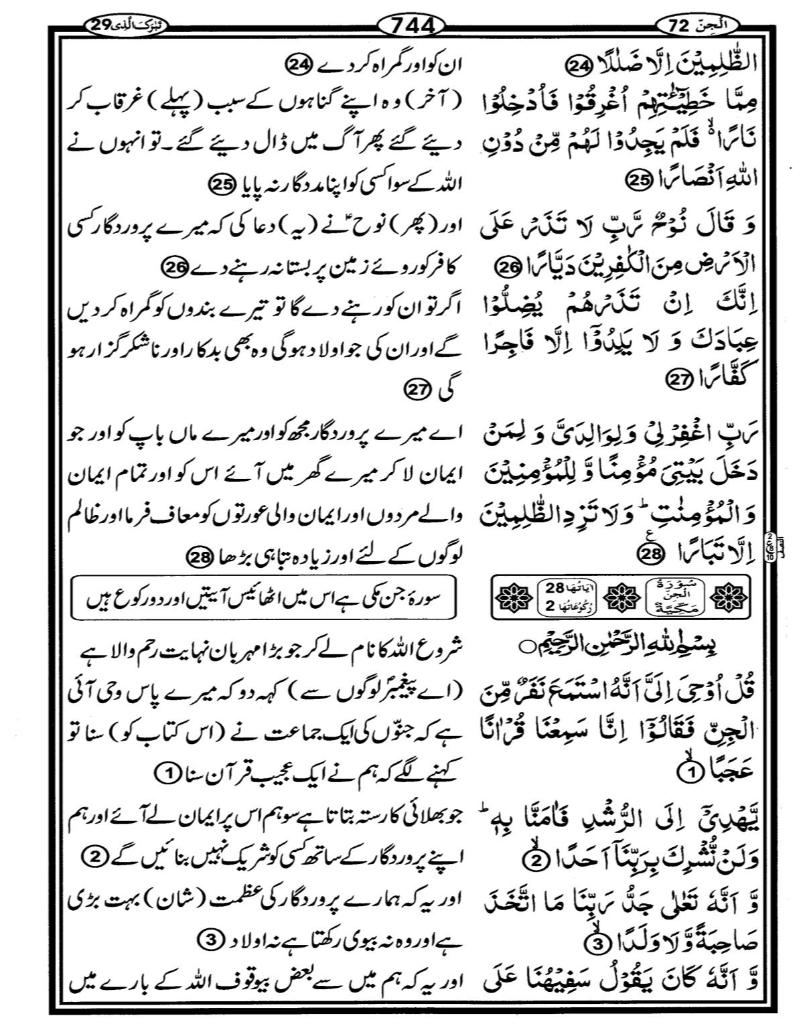 الجن 72
744
تبرك الذی 29
الظّٰلِمِیْنَ اِلَّا ضَلٰلًا 24
مِمَّا خَطِیْٓـٰٔتِهِمْ اُغْرِقُوْا فَاُدْخِلُوْا
نَارًا ۙ۬ فَلَمْ یَجِدُوْا لَهُمْ مِّنْ دُوْنِ
اللّٰهِ اَنْصَارًا 25
وَ قَالَ نُوْحٌ رَّبِّ لَا تَذَرْ عَلَی
الْاَرْضِ مِنَ الْكٰفِرِیْنَ دَیَّارًا 26
اِنَّكَ اِنْ تَذَرْهُمْ یُضِلُّوْا
عِبَادَكَ وَ لَا یَلِدُوْۤا اِلَّا فَاجِرًا
كَفَّارًا 27
رَبِّ اغْفِرْ لِیْ وَلِوَالِدَیَّ وَ لِمَنْ
دَخَلَ بَیْتِیَ مُؤْمِنًا وَّ لِلْمُؤْمِنِیْنَ
وَالْمُؤْمِنٰتِ ؕ وَلَا تَزِدِ الظّٰلِمِیْنَ
اِلَّا تَبَارًا 28 ع
سُوْرَةُ الْجِنِّ مَكِّیَّةٌ
اٰیَاتُهَا 28
رُكُوْعَاتُهَا 2
بِسْمِ اللّٰهِ الرَّحْمٰنِ الرَّحِیْمِ
قُلْ اُوْحِیَ اِلَیَّ اَنَّهُ اسْتَمَعَ نَفَرٌ مِّنَ
الْجِنِّ فَقَالُوْۤا اِنَّا سَمِعْنَا قُرْاٰنًا
عَجَبًا ۙ 1
یَّهْدِیْۤ اِلَی الرُّشْدِ فَاٰمَنَّا بِهٖ ؕ
وَلَنْ نُّشْرِكَ بِرَبِّنَاۤ اَحَدًا ۙ 2
وَّ اَنَّهٗ تَعٰلٰی جَدُّ رَبِّنَا مَا اتَّخَذَ
صَاحِبَةً وَّلَا وَلَدًا ۙ 3
وَّ اَنَّهٗ كَانَ یَقُوْلُ سَفِیْهُنَا عَلَی
ان کو اور گمراہ کر دے 24
(آخر) وہ اپنے گناہوں کے سبب (پہلے) غرقاب کر
دیئے گئے پھر آگ میں ڈال دیئے گئے۔ تو انہوں نے
اللہ کے سوا کسی کو اپنا مددگار نہ پایا 25
اور (پھر) نوحؑ نے (یہ) دعا کی کہ میرے پروردگار کسی
کافر کو روئے زمین پر بستا نہ رہنے دے 26
اگر تو ان کو رہنے دے گا تو تیرے بندوں کو گمراہ کر دیں
گے اور ان کی جو اولاد ہوگی وہ بھی بدکار اور ناشکر گزار ہو
گی 27
اے میرے پروردگار مجھ کو اور میرے ماں باپ کو اور جو
ایمان لا کر میرے گھر میں آئے اس کو اور تمام ایمان
والے مردوں اور ایمان والی عورتوں کو معاف فرما اور ظالم
لوگوں کے لئے اور زیادہ تباہی بڑھا 28
سورۂ جن مکی ہے اس میں اٹھائیس آیتیں اور دو رکوع ہیں
شروع اللہ کا نام لے کر جو بڑا مہربان نہایت رحم والا ہے
(اے پیغمبرؐ لوگوں سے) کہہ دو کہ میرے پاس وحی آئی
ہے کہ جنّوں کی ایک جماعت نے (اس کتاب کو) سنا تو
کہنے لگے کہ ہم نے ایک عجیب قرآن سنا 1
جو بھلائی کا رستہ بتاتا ہے سو ہم اس پر ایمان لے آئے اور ہم
اپنے پروردگار کے ساتھ کسی کو شریک نہیں بنائیں گے 2
اور یہ کہ ہمارے پروردگار کی عظمت (شان) بہت بڑی
ہے اور وہ نہ بیوی رکھتا ہے نہ اولاد 3
اور یہ کہ ہم میں سے بعض بیوقوف اللہ کے بارے میں